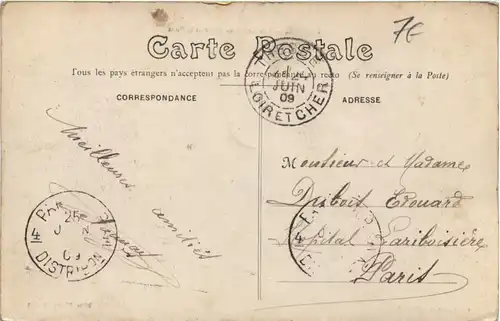 7€
Carte Postale
Tous les pays étrangers n'acceptent pas la correspondance au recto (Se renseigner à la Poste)
CORRESPONDANCE
ADRESSE
24
JUIN
09
LOIR ET CHER
Meilleures
amitiés
Monsieur et Madame
Dubois Edouard
Hôpital Lariboisière
Paris
PARIS
25
09
DISTRIBON